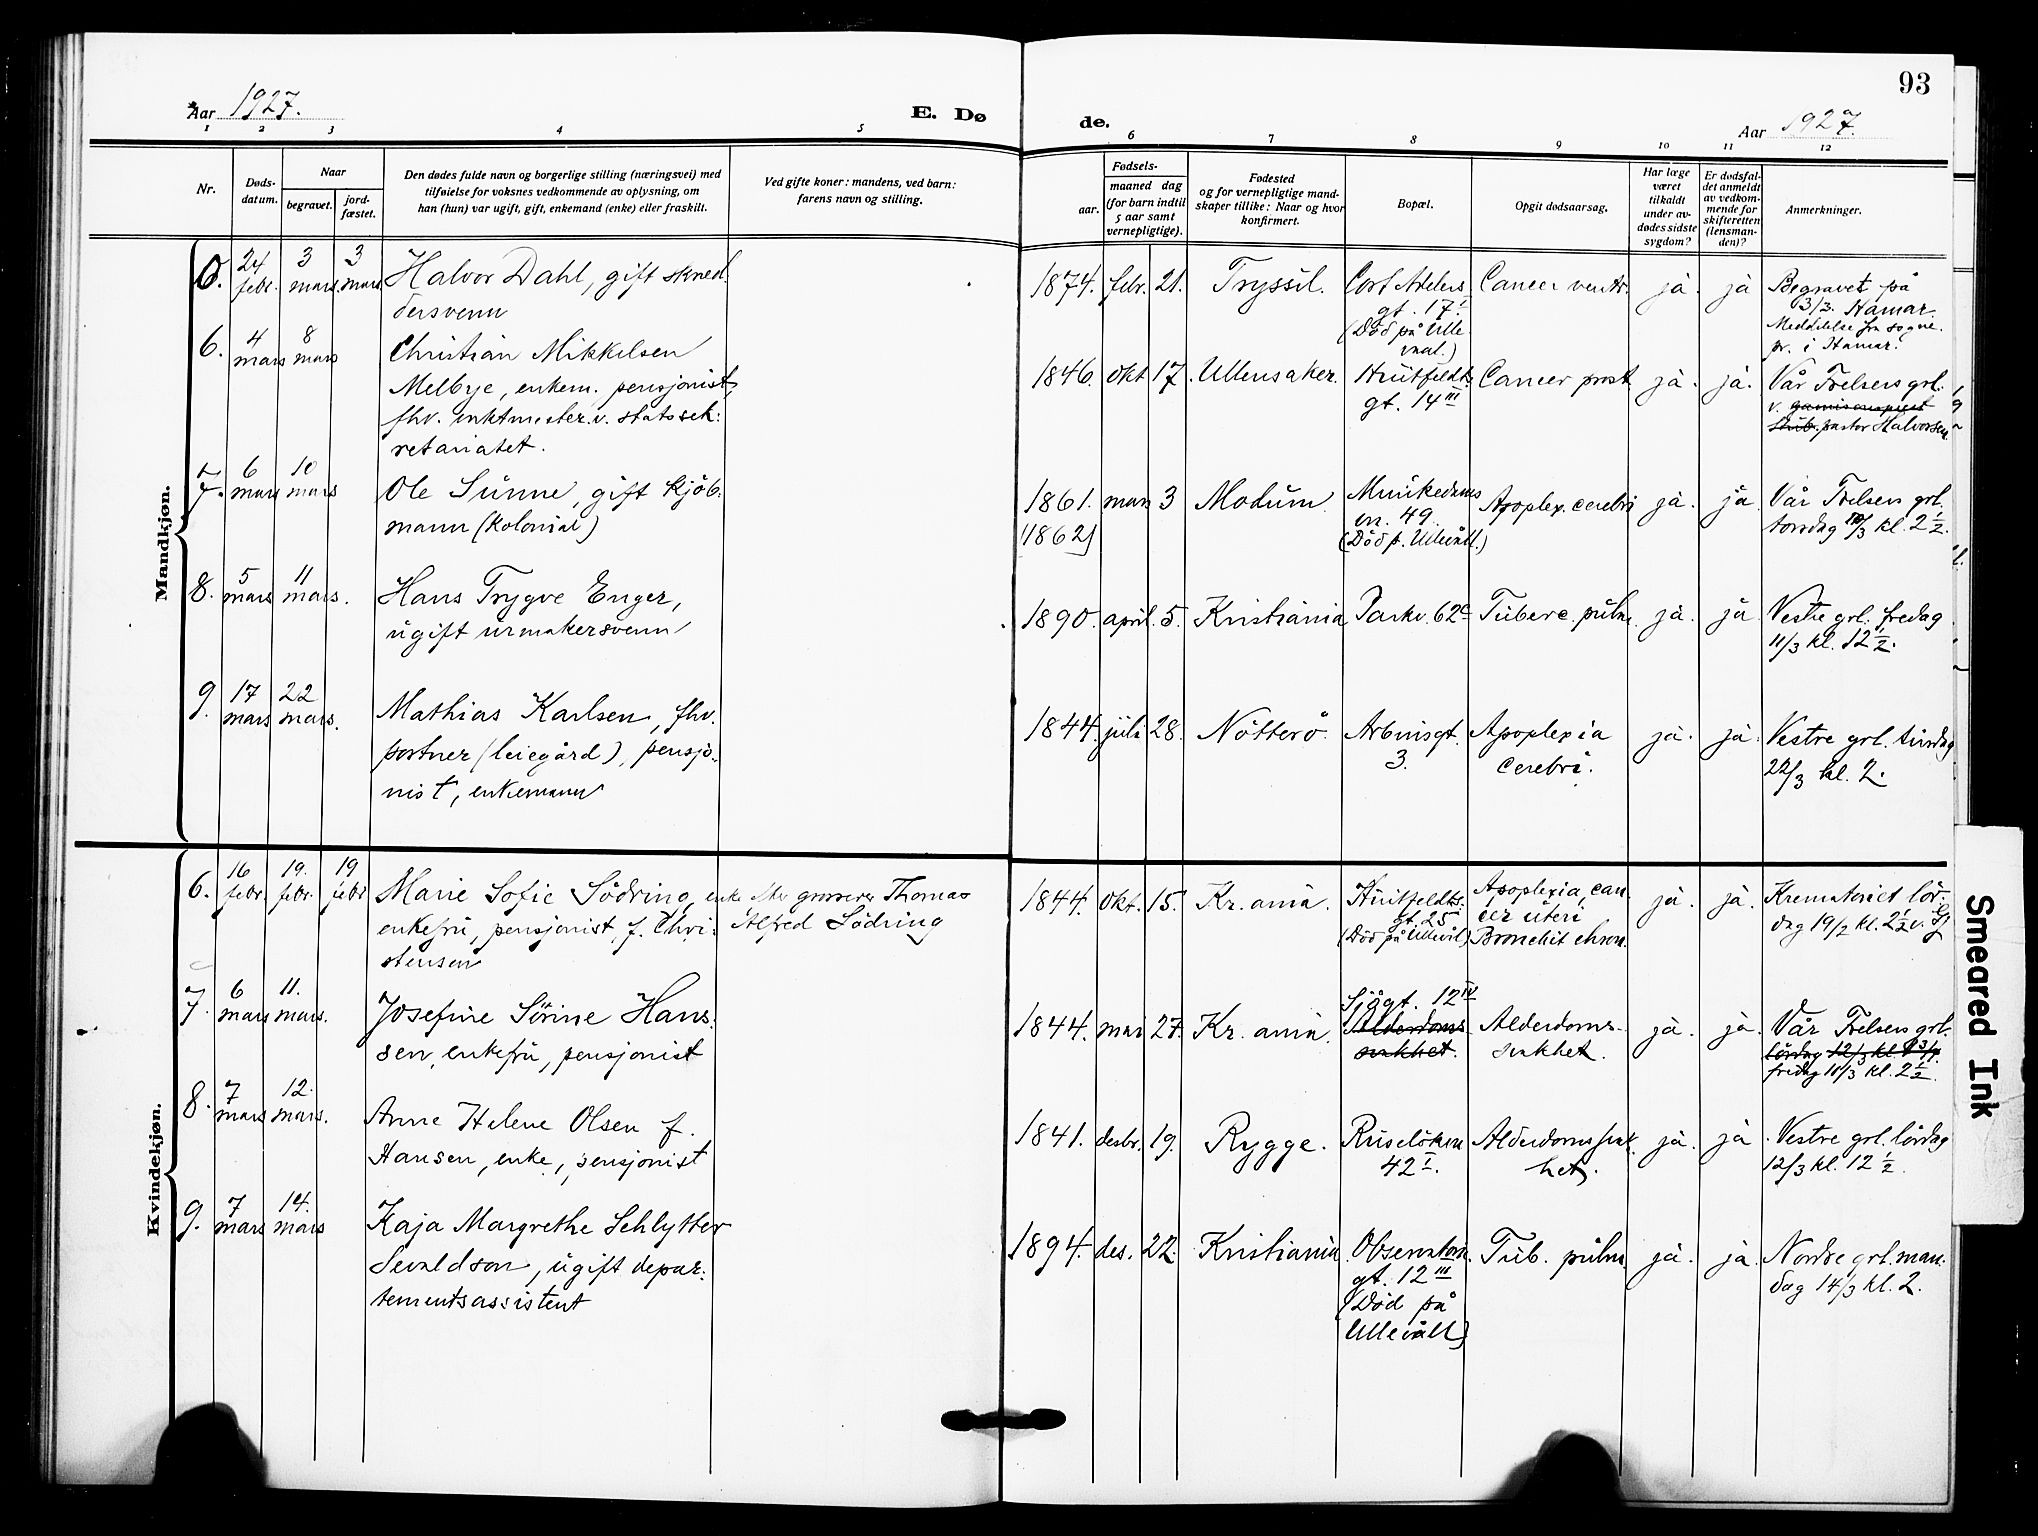 93
Aar 1927.
E. Dø
de.
Aar 1927.
1 2 3 4 5 6 7 8 9 10 11 12
Nr.
Døds-
datum.
Naar
begravet.
jord-
fæstet.
Den dødes fulde navn og borgerlige stilling (næringsvei) med
tilføielse for voksnes vedkommende av oplysning, om
han (hun) var ugift, gift, enkemand (enke) eller fraskilt.
Ved gifte koner: mandens, ved barn:
farens navn og stilling.
Fødsels-
aar.
maaned dag
(for barn indtil
5 aar samt
vernepligtige).
Fødested
og for vernepligtige mand-
skaper tillike: Naar og hvor
konfirmert.
Bopæl.
Opgit dødsaarsag.
Har læge
været
tilkaldt
under av-
dødes sidste
sygdom?
Er dødsfal-
det anmeldt
av vedkom-
mende for
skifteretten
(lensman-
den)?
Anmerkninger.
Mandkjøn.
24 febr. 3 mars. 3 mars. Halvor Dahl, gift skred-
dersvenn
1874. febr. 21. Tryssil. Cort Adelers
gt. 17 I
(Död på Ulle-
vaal.)
Cancer ventr. ja. ja
Begravet på
3/3. Hamar.
Meddelelse fra sogne-
pr. i Hamar.
6. 4 mars 8 mars Christian Mikkelsen
Melbye, enkem. pensjonist,
fhv. inktmester v. statssek-
retariatet.
1846. okt 17. Ullensaker. Huitfeldts
gt. 14 III
Cancer prost. ja. ja.
Vår Frelsers grl.
v. garnisonsprest
pastor Halvorsen.
7. 6 mars 10 mars Ole Sunne, gift kjöb-
mann (kolonial)
1861. mars 3 Modum.
[1862]
Munkedams
vn. 49.
(Död p. Ullevåll.)
Apoplex. cerebri ja. ja.
Vår Frelsers grl.
torsdag 10/3 kl. 2 1/2.
8. 5 mars 11 mars. Hans Trygve Enger,
ugift urmakersvenn
1890. april. 5. Kristiania Parkv. 62c Tuberc. pulm. ja. ja.
Vestre grl. fredag
11/3 kl. 12 1/2.
9. 17 mars 22 mars. Mathias Karlsen, fhv.
portner (leiegård), pensjo-
nist, enkemann
1844. juli 28. Nötterö. Arbinsgt.
3.
Apoplexia
cerebri.
ja. ja.
Vestre grl. tirsdag
22/3 kl. 2.
Kvindekjøn.
6. 16 febr. 19. febr. 19 febr Marie Sofie Södring, enke efter grosserer Thomas
enkefru, pensjonist, f. Chri- Alfred Södring
stensen
1844. Okt. 15. Kr. ania. Huitfeldts-
gt. 25 I
(Död på Ullevål)
Apoplexia, can-
cer uteri,
Bronchit chron.
ja. ja.
Krematoriet lör-
dag 19/2 kl. 2 1/2 v.
7. 6 mars 11. mars. Josefine Sörine Hans-
sen, enkefru, pensjonist
1844. mai 27. Kr. ania. Sjögt. 12 IV
Alderdoms
svakhet.
Alderdoms-
svakhet.
ja. ja.
Vår Frelsers grl.
lördag 12/3 kl. 1 3/4.
fredag 11/3 kl. 2 1/2.
8. 7 mars 12. mars. Anne Helene Olsen f.
Hansen, enke, pensjonist
1841. desbr. 19. Rygge. Ruselökvn
42 I.
Alderdomssvak-
het.
ja. ja.
Vestre grl. lördag
12/3 kl. 12 1/2.
9. 7 mars 14. mars Kaja Margrethe Schlytter
Sevaldson, ugift depar-
tementsassistent
1894. des. 22. Kristiania. Observatorie
gt. 12 III
(Död på
Ullevåll)
Tub. pulm ja. ja.
Nordre grl. man-
dag 14/3 kl. 2.
Smeared Ink